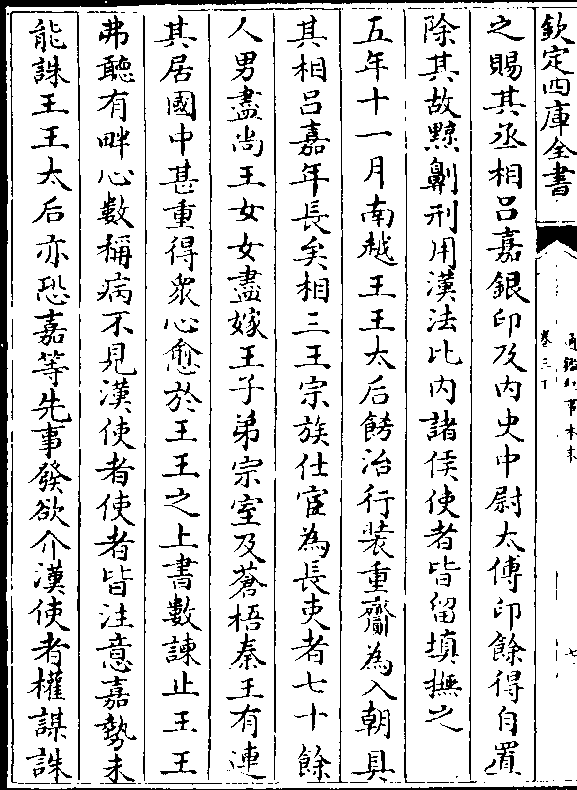 欽定四庫全書
通鑑紀事本末
卷三下
之賜其丞相吕嘉銀印及内史中尉太傅印餘得自置
除其故黥劓刑用漢法比内諸侯使者皆留填撫之
五年十一月南越王王太后飭治行装重齎為入朝具
其相吕嘉年長矣相三王宗族仕宦為長吏者七十餘
人男盡尚王女女盡嫁王子弟宗室及蒼梧秦王有連
其居國中甚重得衆心愈於王王之上書數諫止王王
弗聽有畔心數稱病不見漢使者使者皆注意嘉勢未
能誅王王太后亦恐嘉等先事發欲介漢使者權謀誅